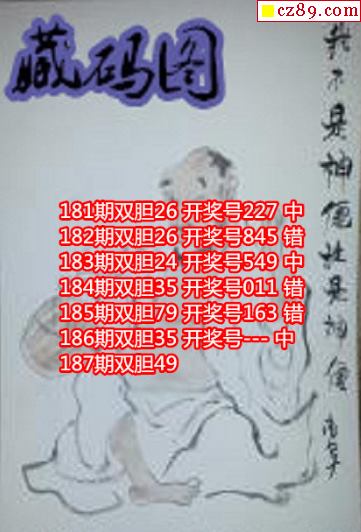 cz89.com
藏码图
我不是神仙就是神仙
181期双胆26 开奖号227 中
182期双胆26 开奖号845 错
183期双胆24 开奖号549 中
184期双胆35 开奖号011 错
185期双胆79 开奖号163 错
186期双胆35 开奖号--- 中
187期双胆49